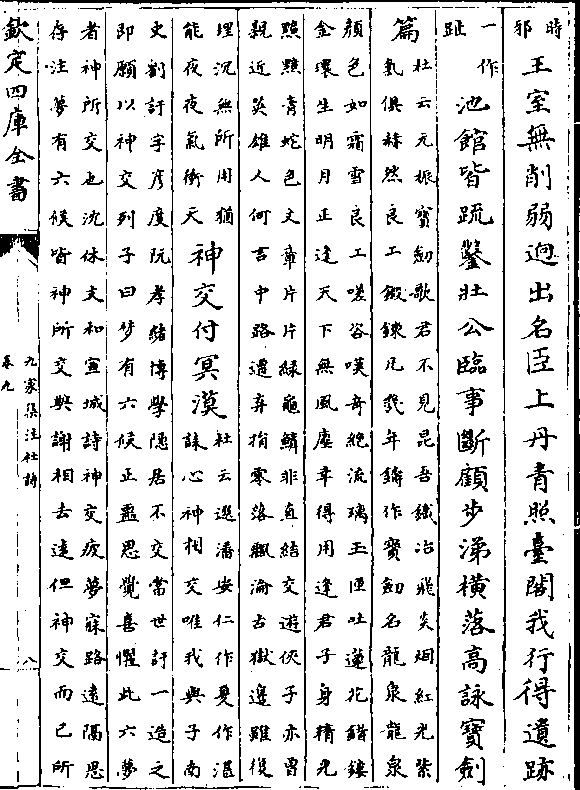 時
邪
王室無削弱迥出名臣上丹青照臺閣我行得遺跡
一作
趾
池館皆疏鑿壯公臨事斷顧步涕橫落高詠寶劍
篇
杜云元振寶劔歌君不見昆吾鐵冶飛炎烟紅光紫
氣俱赫然良工鍛鍊凡幾年鑄作寶劔名龍泉龍泉
顏色如霜雪良工嗟咨嘆奇絶流璃玉匣吐蓮花錯鏤
金環生明月正逢天下無風塵幸得用逢君子身精光
黯黯青蛇色文章片片緑龜鱗非直結交遊俠子亦曽
親近英雄人何言中路遭弃捐零落飄淪古獄邊雖復
埋沉無所用猶
能夜夜氣衝天
神交付冥漠
杜云選潘安仁作夏作湛
誄心神相交唯我與子南
史劉訏字彦度阮孝緒博學隱居不交當世訏一造之
即願以神交列子曰夢有六候正噩思覺喜懼此六夢
者神所交也沈休文和宣城詩神交疲夢寐路遠隔思
存注夢有六候皆神所交與謝相去逺但神交而已所
欽定四庫全書
九家集注杜詩
卷九
八